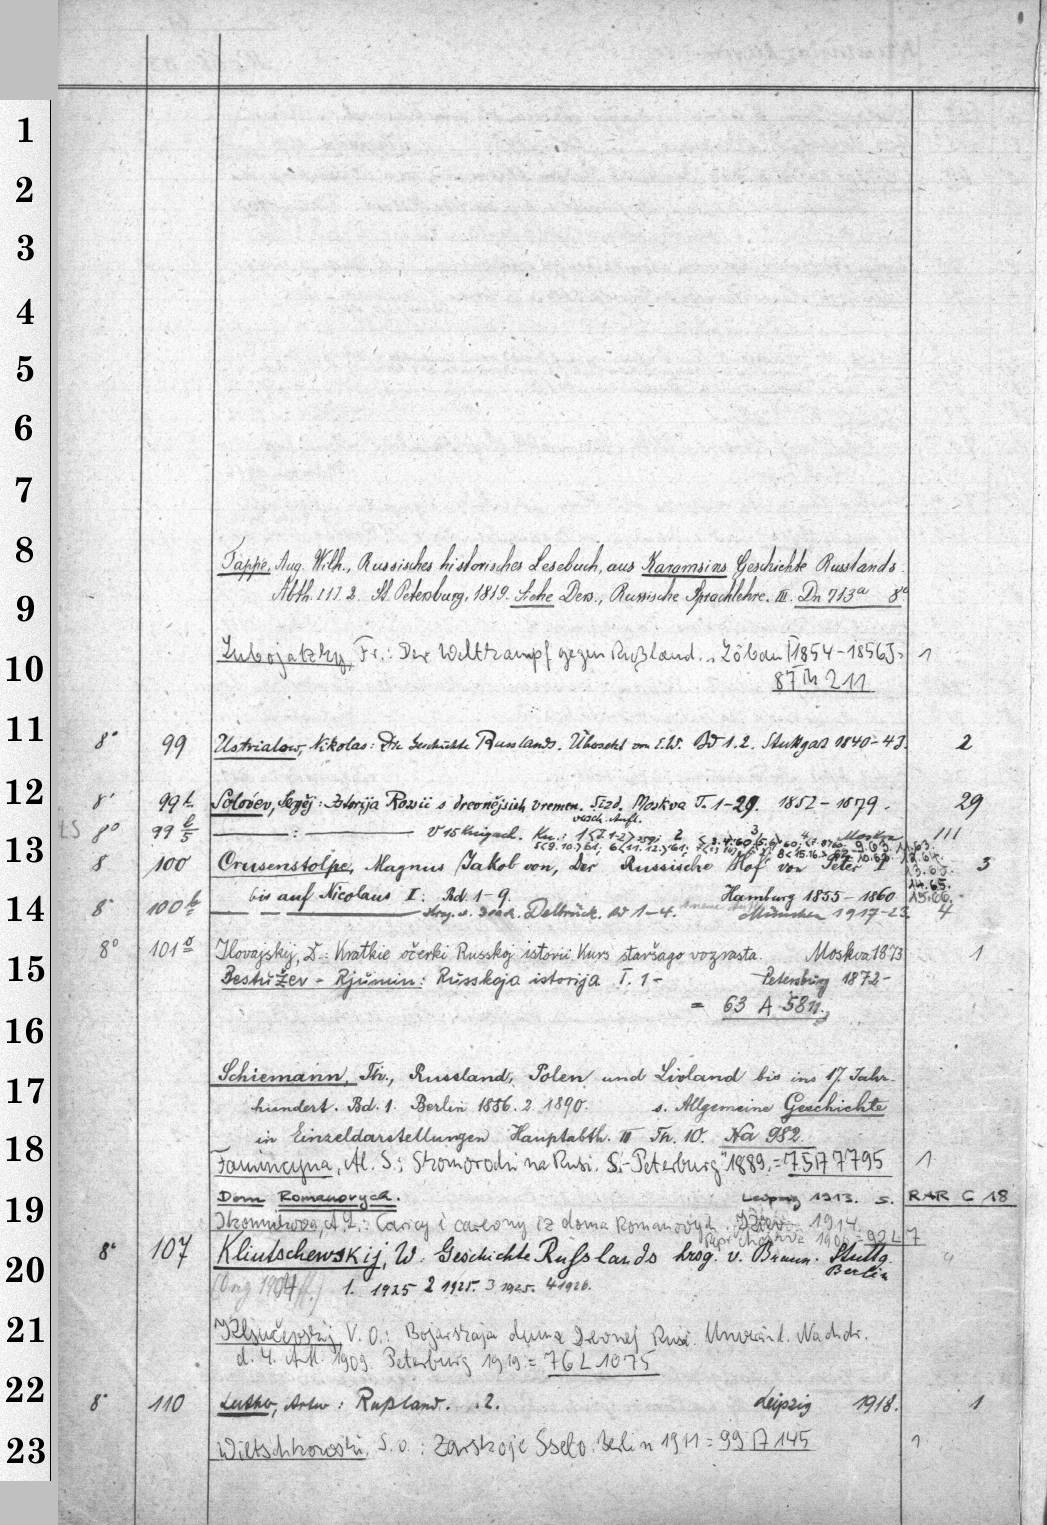 1
2
3
4
5
6
7
8
Tappe, Aug. Wilh., Russisches historisches Lesebuch, aus Karamsins Geschichte Russlands.
9
Abth. 1 2. St. Petersburg, 1819. Siehe Ders., Russische Sprachlehre. III. Dn 713a 8°
10
Lubojatzky, Fr.: Der Weltkampf gegen Rußland. Löbau [1854-1856]. 1
87 211
11
8° 99 Ustrialow, Nikolas: Die Geschichte Russlands. Übersetzt von E.W. Bd 1.2. Stuttgart 1840-43. 2
12
8° 99 Solovev, Sergěj: Istorija Rossii s drevnějsich vremen. Izd. Moskva T. 1-29. 1851-1879. 29
8° 99 : V 15 Knigach. Kn.: Moskva III
13
8 100 Crusenstolpe, Magnus Jakob von, Der Russische Hof von Peter I 3
bis auf Nicolaus I. Bd. 1-9. Hamburg 1855-1860
14
8° 100 Delbrück. Bd 1-4. München 1917-23. 4
8° 101 Ilovajskij, D.: Kratkie očerki Russkoj istorii. Kurs staršago vozrasta. Moskva 1873 1
15
Bestužev-Rjumin: Russkaja istorija T. 1- Petersburg 1872-
= 63 A 5811.
16
17
Schiemann, Th., Russland, Polen und Livland bis ins 17. Jahr-
hundert. Bd. 1. Berlin 1886. 2. 1890. s. Allgemeine Geschichte
in Einzeldarstellungen Hauptabth. III Th. 10. Na 982.
18
Famincyna, Al. S.: Skomorochi na Rusi. S.-Peterburg 1889. = 75 A 7795 1
19
Dom Romanovych. Leipzig 1913. s. RAR C 18
Caricy i carevny iz doma Romanovych. Kiev 1914.
Repr. Moskva = 92 L 7
8° 107 Kliutschewskij, W. Geschichte Russlands hrsg. v. Braun. Stuttg.
20
Berlin
1. 1925 2 1925. 3 1925. 4 1926.
21
Ključevskij, V. O.: Bojarskaja duma Drevnej Rusi. Unveränd. Nachdr.
d. 4. Aufl. 1909. Peterburg 1919 = 76 L 1075
22
8° 110 Luther, Artur: Rußland. 2. Leipzig 1918. 1
23
Wiltschkowski, S. v.: Zarskoje Sselo. Berlin 1911 = 99 A 145 1